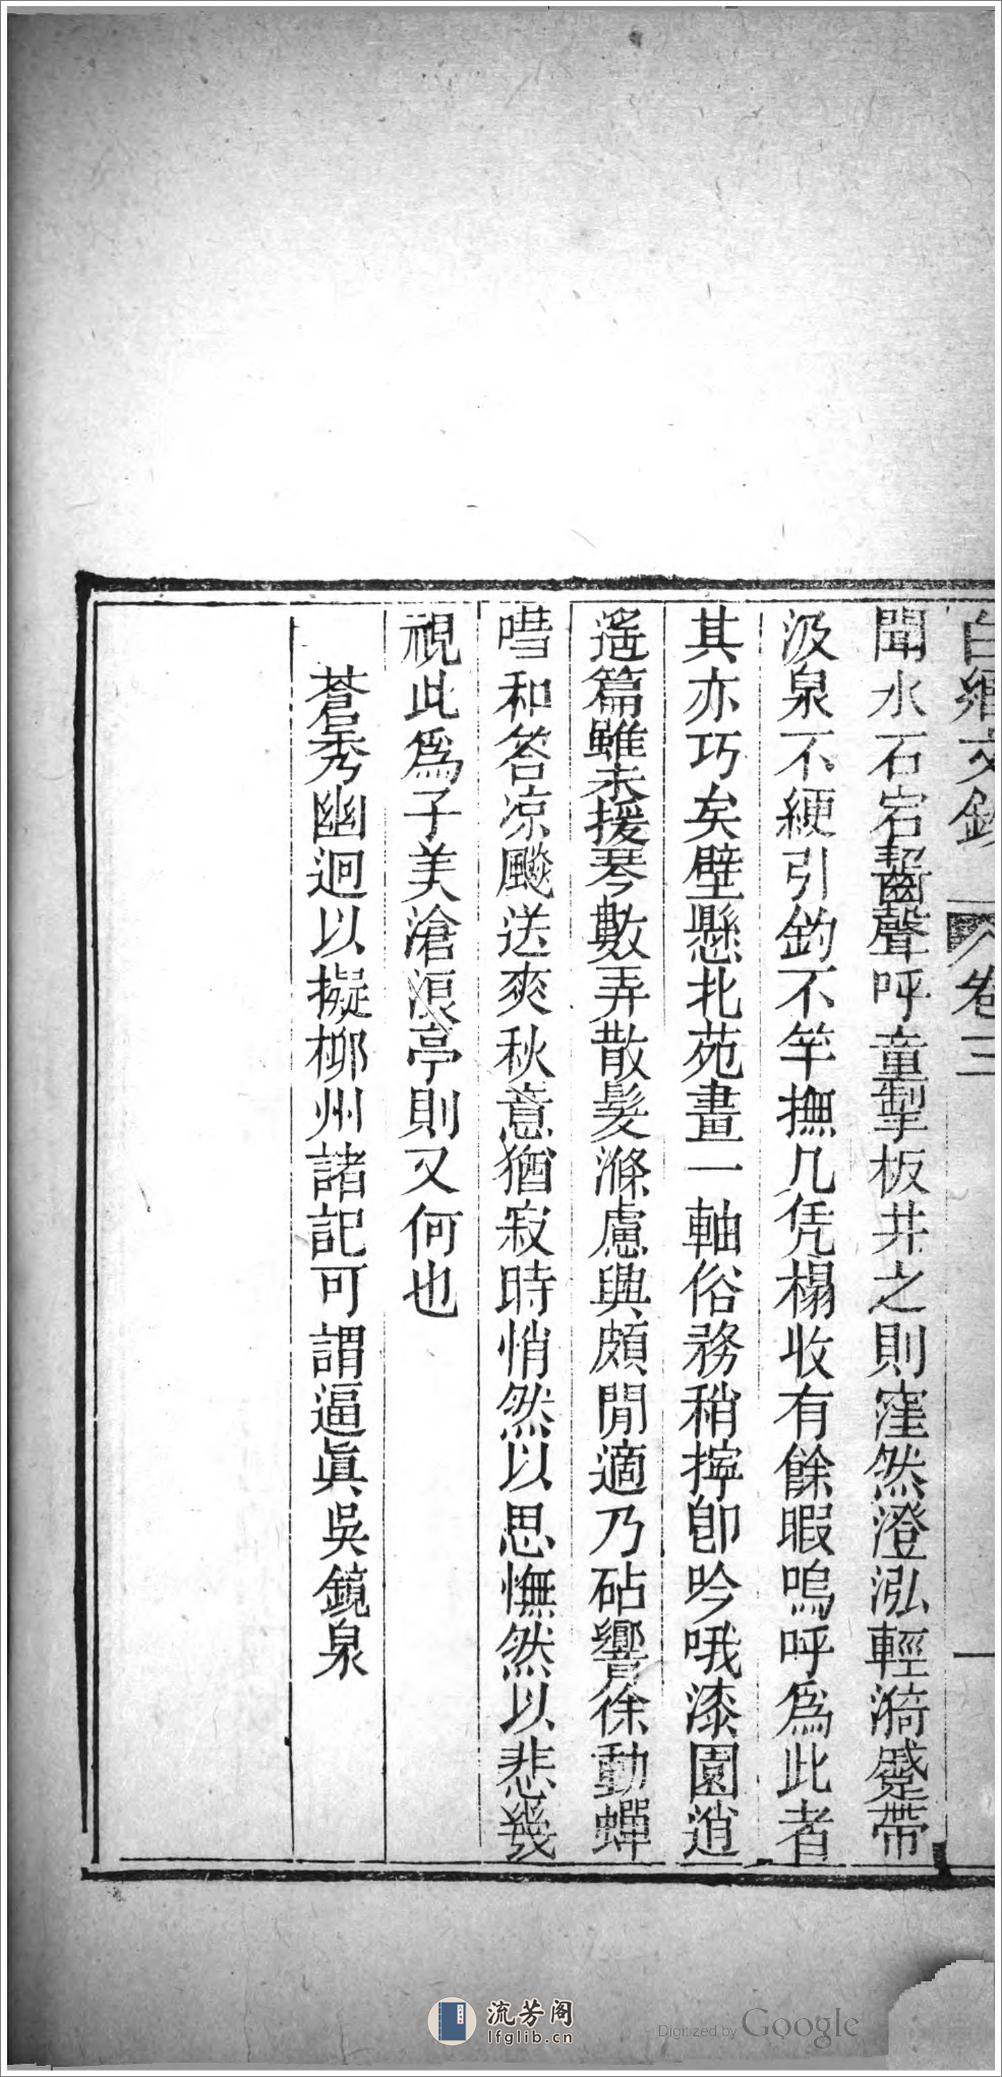 白
文
卷三
一
聞水石宕齧聲呼童掣板井之則窪然澄泓輕漪蹙帶
汲泉不綆引釣不竿撫几凭榻收有餘暇嗚呼爲此者
其亦巧矣壁懸北苑畫一軸俗務稍擰卽吟哦漆園逍
遙篇雖未援琴數弄散髮滌慮興頗閒適乃砧響徐動蟬
唶和答凉颸送爽秋意猶寂時悄然以思憮然以悲幾
視此爲子美滄浪亭則又何也
蒼秀幽迥以擬柳州諸記可謂逼眞吳鏡泉
流芳阁
lfglib.cn
Digitized by Google